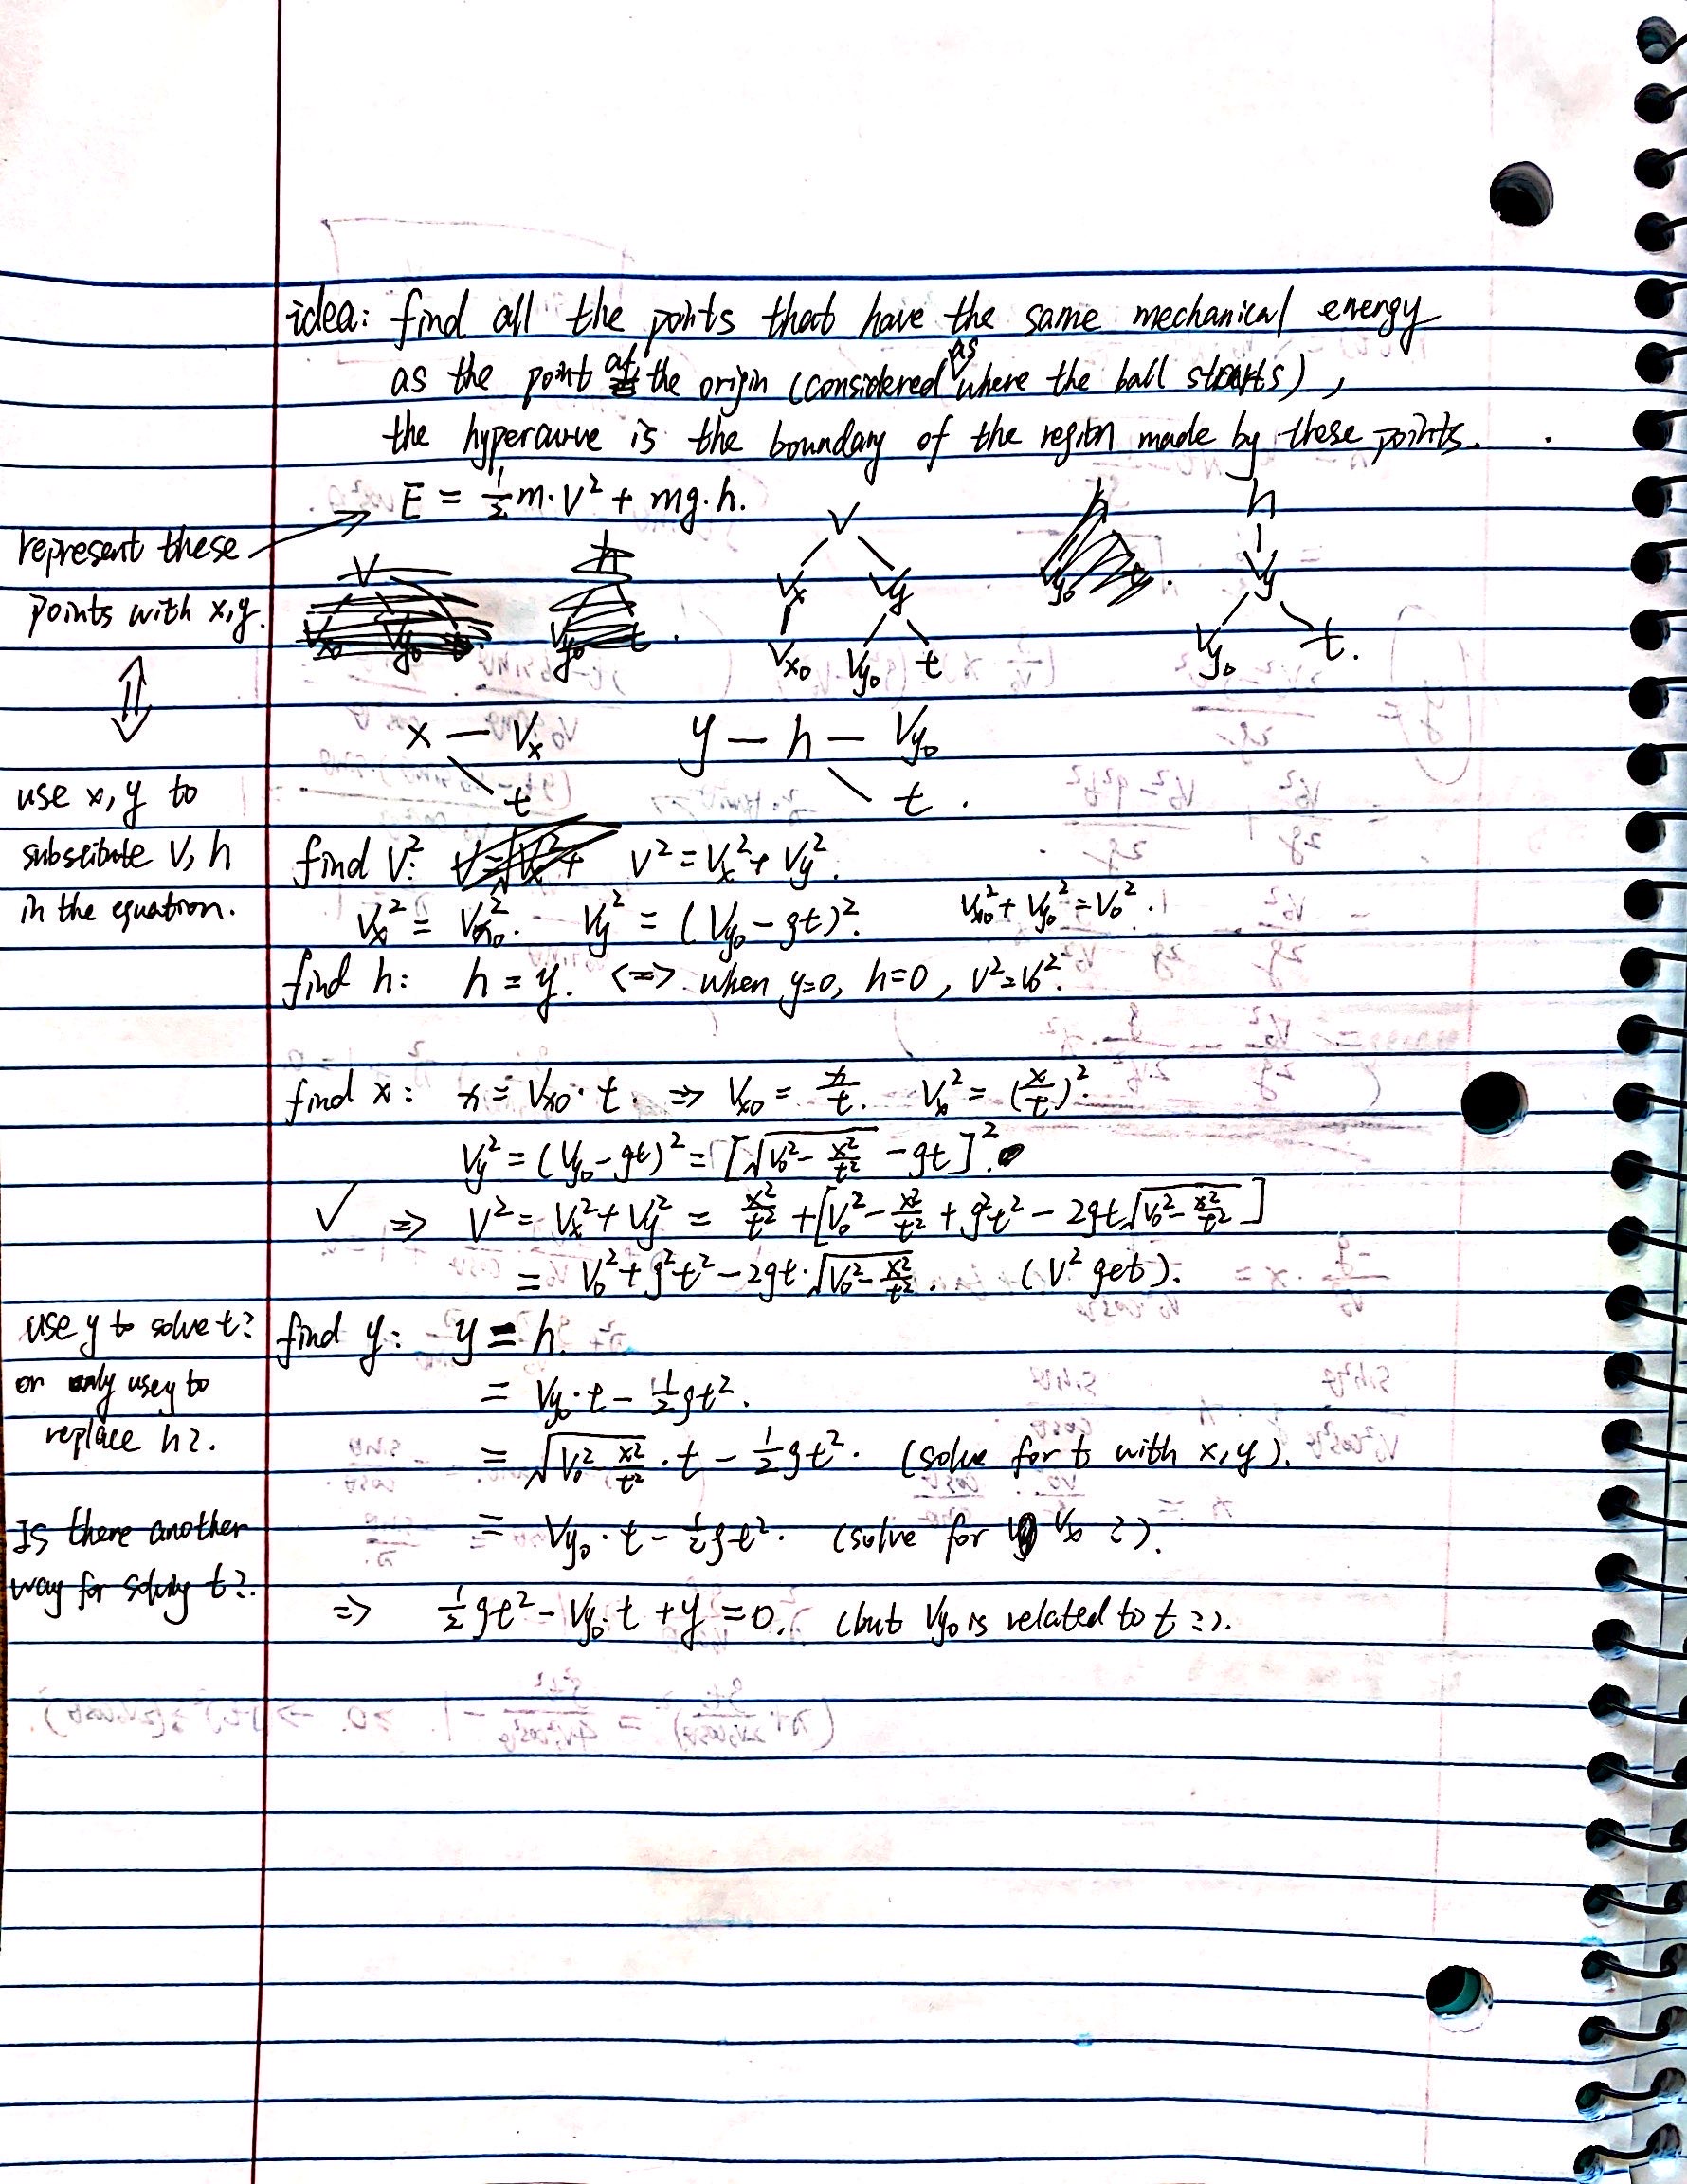 idea: find all the points that have the same mechanical energy
as the point at the origin (considered as where the ball starts),
the hypercurve is the boundary of the region made by these points.
E = ½m·V² + mg·h.
represent these
points with x,y.
⇕
use x, y to
substitute V, h
in the equation.
V h
Vx Vy Vy
Vx₀ Vy₀ t Vy₀ t.
x — Vx y — h — Vy₀
t t.
find V²: V² = Vx² + Vy².
Vx² = Vx₀². Vy² = (Vy₀ - gt)². Vx₀² + Vy₀² = V₀².
find h: h = y. <=> when y=0, h=0, V²=V₀².
find x: x = Vx₀·t. ⇒ Vx₀ = x/t. Vx² = (x/t)².
Vy² = (Vy₀ - gt)² = [√(V₀² - x²/t²) - gt]².
✓ ⇒ V² = Vx² + Vy² = x²/t² + [V₀² - x²/t² + g²t² - 2gt√(V₀² - x²/t²)]
= V₀² + g²t² - 2gt·√(V₀² - x²/t²). (V² get).
use y to solve t?
or only use y to
replace h?.
find y: y = h.
= Vy₀·t - ½gt².
= √(V₀² - x²/t²)·t - ½gt². (solve for t with x, y).
= Vy₀·t - ½gt². (solve for Vx ?).
Is there another
way for solving t?.
⇒ ½gt² - Vy₀·t + y = 0. (but Vy₀ is related to t?).